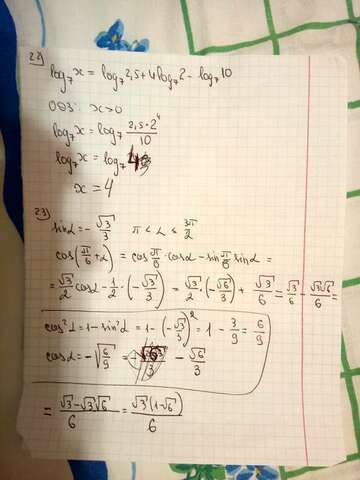 22)
log₇x = log₇2,5 + 4log₇2 - log₇10
ОДЗ: x>0
log₇x = log₇ (2,5·2⁴)/10
log₇x = log₇4
x = 4
23)
sinα = - √3/3   π < α < 3π/2
cos(π/6 + α) = cos π/6 · cosα - sin π/6 sinα =
= √3/2 cosα - 1/2 · (-√3/3) = √3/2 · (-√6/3) + √3/6 = √3/6 - √3√6/6 =
cos²α = 1 - sin²α = 1 - (-√3/3)² = 1 - 3/9 = 6/9
cosα = -√(6/9) = - √6/3
= (√3 - √3√6)/6 = √3(1-√6)/6